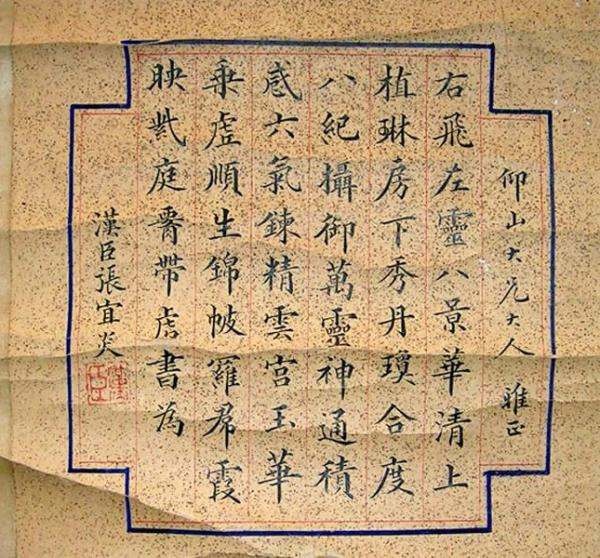 仰山大兄大人 雅正
右飛左靈八景華清上
植琳房下秀丹瓊合度
八紀攝御萬靈神通積
感六氣鍊精雲宮玉華
乘虛順生錦帔羅帬霞
映紫庭帶虎書為
漢臣張宜炎